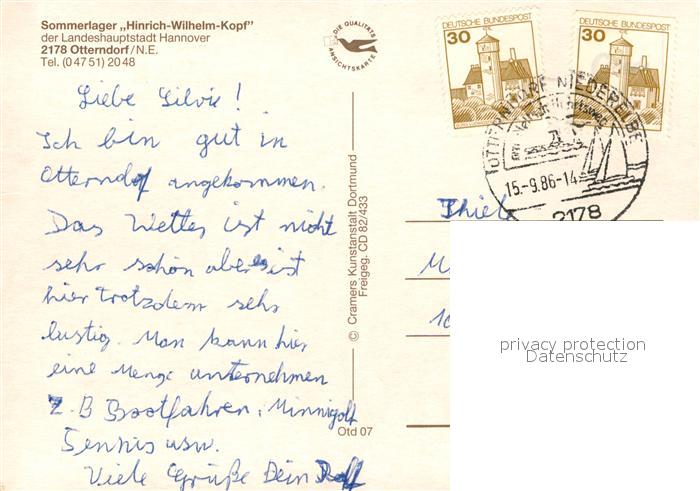 Sommerlager „Hinrich-Wilhelm-Kopf"
der Landeshauptstadt Hannover
2178 Otterndorf/N.E.
Tel. (0 47 51) 20 48
DIE QUALITÄTS
ANSICHTSKARTE
DEUTSCHE BUNDESPOST
30
DEUTSCHE BUNDESPOST
30
OTTERNDORF NIEDERELBE
15.-9.86-14
2178
Liebe Silvie!
Ich bin gut in
Otterndof angekommen.
Das Wetter ist nicht
sehr schön aber es ist
hier trotzdem sehr
lustig. Man kann hier
eine Menge unternehmen
z.B Bootfahren, Minnigolf
Tennis usw.
Viele Grüße Dein Rolf
© Cramers Kunstanstalt Dortmund
Freigeg. CD 82/433
Otd 07
Thiel
privacy protection
Datenschutz